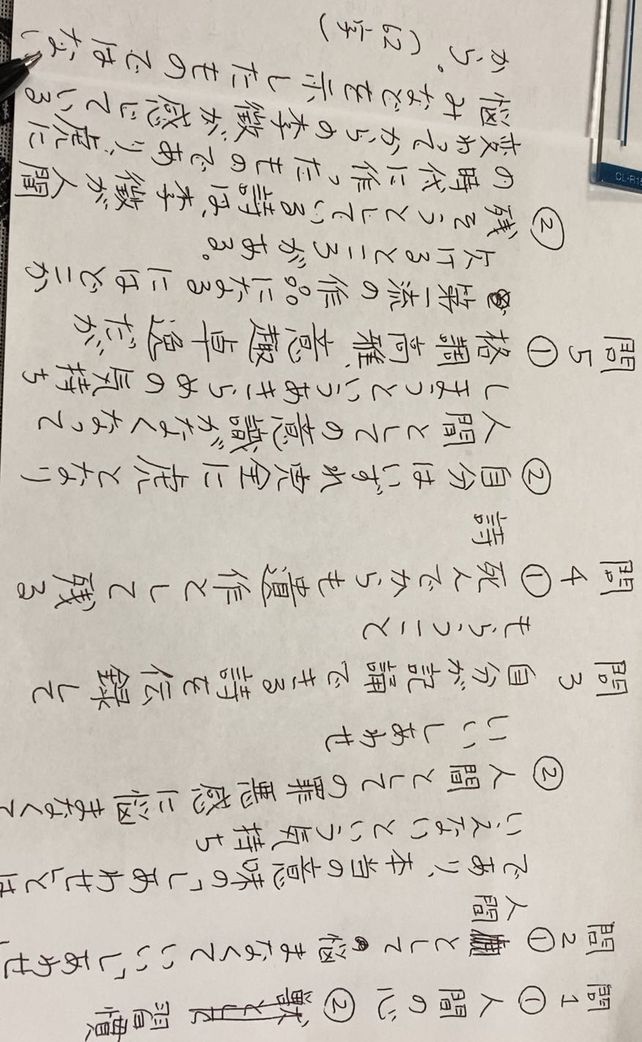 問1 ① 人間の心 ② 獣 習慣
問2 ① 人間として悩まなくていい「しあわせ」
であり、本当の意味の「しあわせ」とは
いえないという気持ち
② 人間としての罪悪感に悩まなくて
いいしあわせ
問3 自分が記誦できる詩を伝録して
もらうこと
問4 ① 死んでからも遺作として残る
詩
② 自分はいずれ完全に虎となり
人間としての意識がなくなって
しまうというあきらめの気持ち
問5 ① 格調高雅、意趣卓逸だが
第一流の作品になるにはどこか
欠けるところがある。
② 残そうとしている詩は、李徴が人間
の時代に作ったものであり、虎に
変わってからの李徴が感じている
悩みなどを示したものではない
から。(62字)